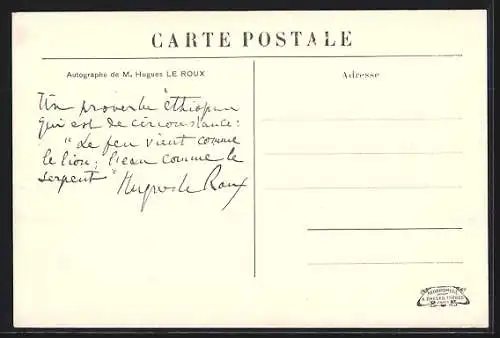 CARTE POSTALE
Autographe de M. Hugues LE ROUX
Adresse
Un proverbe éthiopien
qui est de circonstance :
" Le feu vient comme
le lion ; l'eau comme le
serpent "
Hugues le Roux